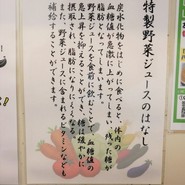 特製野菜ジュースのはなし
炭水化物をはじめに食べると、体内の
血糖値が急激に上がってしまい、残った糖が
脂肪になってしまいます。
野菜ジュースを食前に飲むこと
息上昇を抑えることができ、糖は緩やかに
摂取され、脂肪になりにくくなります。
また、野菜ジュースに含まれるビタミンなども
補給することができます。